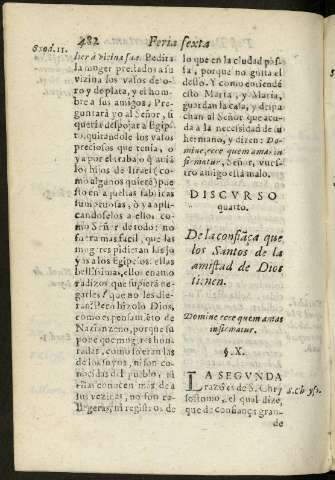 482 Feria sexta
Exod. 11.
lier à vizina sua. Pedirà
la muger prestados a su
vizina los vasos de o-
ro y de plata, y el hom-
bre a sus amigos, Pre-
guntarà yo al Señor, si
queria despojar a Egip-
to, quitandole los vasos
preciosos que tenia, o
ya por el trabajo q̃ auiã
los hijos de Israel (co-
mo algunos quierẽ) pue
sto en aquellas fabricas
sumptuosas, ò ya apli-
candoselos a ellos, co-
mo Señor de todo: no
fuera mas facil, que las
mugeres pidieran las jo
yas a los Egipcios: ellas
bellissimas, ellos enamo
radizos que supieran ne-
garles? que no les die-
ran? esso hizolo Dios,
como es pensamiẽto de
Nazianzeno, porque su
pone que mugeres hon
radas, como lo eran las
de los suyos, ni son co-
nocidas del pueblo, ni
ellas conocen mas de a
sus vezinas, no son ca-
llegeras, ni registros de
lo que en la ciudad pas-
sa, porque no gusta el
dello. Y como entiende
esto Marta, y Maria,
guardan la casa, y despa
chan al Señor que acu-
da a la necesidad de su
hermano, y dizen: Do-
mine, ecce quem amas in
firmatur, Señor, vues-
tro amigo està malo.
DISCVRSO
quarto.
De la confiãça que
los Santos de la
amistad de Dios
tienen.
Domine ecce quem amas
infirmatur.
§. X.
LA SEGVNDA
razõ es de S. Chry
sostomo, el qual dize,
que de confiança gran-
de
S. Chrys.